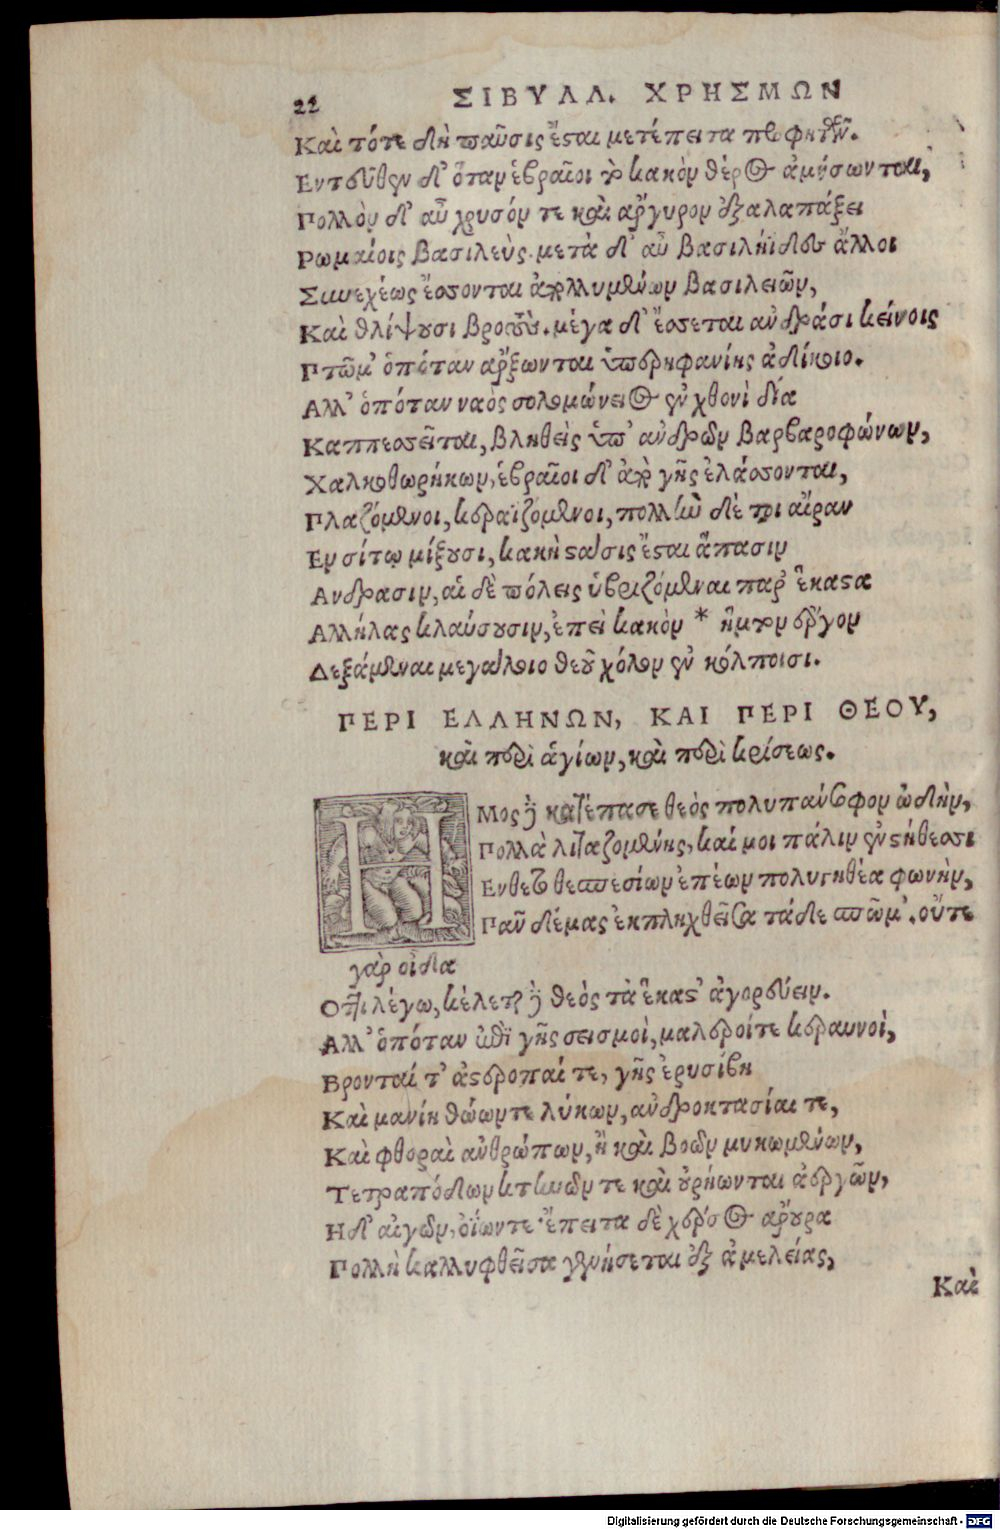 22 ΣΙΒΥΛΛ. ΧΡΗΣΜΩΝ
Καὶ τότε δὴ παῦσις ἔσται μετέπειτα προφητῶν.
Εντεῦθεν δ' ὅταν ἑβραῖοι τὸ κακὸν θέρος ἀμήσωνται,
Πολλὸν δ' αὖ χρυσόν τε καὶ ἄργυρον ἐξαλαπάξει
Ρωμαίοις βασιλεὺς. μετὰ δ' αὖ βασιλήϊδος ἄλλοι
Συνεχέως ἔσονται ἀπολλυμένων βασιλειῶν,
Καὶ θλίψουσι βροτοὺς. μέγα δ' ἔσσεται ἀνδράσι κείνοις
Πτῶμ' ὁπόταν ἄρξωνται ὑπερηφανίης ἀδίκοιο.
Αλλ' ὁπόταν ναὸς σολομώνειος ἐν χθονὶ δία
Καππεσεῖται, βληθεὶς ὑπ' ἀνδρῶν βαρβαροφώνων,
Χαλκοθωρήκων, ἑβραῖοι δ' ἀπὸ γῆς ἐλάσονται,
Πλαζόμενοι, κεραϊζόμενοι, πολλὴν δέ τοι αἶραν
Εν σίτῳ μίξουσι, κακὴ στάσις ἔσται ἅπασιν
Ανδράσιν, αἱ δὲ πόλεις ὑβριζόμεναι παρ' ἕκαστα
Αλλήλας κλαύσουσιν, ἐπεὶ κακὸν * ἥμτον ἔργον
Δεξάμεναι μεγάλοιο θεοῦ χόλον ἐν κόλποισι.
ΠΕΡΙ ΕΛΛΗΝΩΝ, ΚΑΙ ΠΕΡΙ ΘΕΟΥ,
καὶ περὶ ἁγίων, καὶ περὶ κρίσεως.
ΗΜος δὴ κατέπαυσε θεὸς πολυπάνσοφον ᾠδὴν,
Πολλὰ λιταζομένης, καί μοι πάλιν ἐν στήθεσσι
Ενθετο θεσπεσίων ἐπέων πολυγηθέα φωνὴν,
Πᾶν δέμας ἐκπληχθεῖσα τάδε ἑσπῶμ'. οὔτε
γὰρ οἶδα
Οττι λέγω, κέλεται δὴ θεὸς τὰ ἕκαστ' ἀγορεύειν.
Αλλ' ὁπόταν ἐπὶ γῆς σεισμοὶ, μαλεροί τε κεραυνοὶ,
Βρονταί τ' ἀστεροπαί τε, γῆς ἐρυσίβη
Καὶ μανίη θώων τε λύκων, ἀνδροκτασίαι τε,
Καὶ φθοραὶ ἀνθρώπων, ἢ καὶ βοῶν μυκωμένων,
Τετραπόδων κτηνῶν τε καὶ οὐρήωνται ἀεργῶν,
Ηδ' αἰγῶν, ὀΐωντε. ἔπειτα δὲ χέρσος ἄρουρα
Πολλὴ καλλυφθεῖσα γενήσεται ἐξ ἀμελείας,
Καὶ
Digitalisierung gefördert durch die Deutsche Forschungsgemeinschaft - DFG